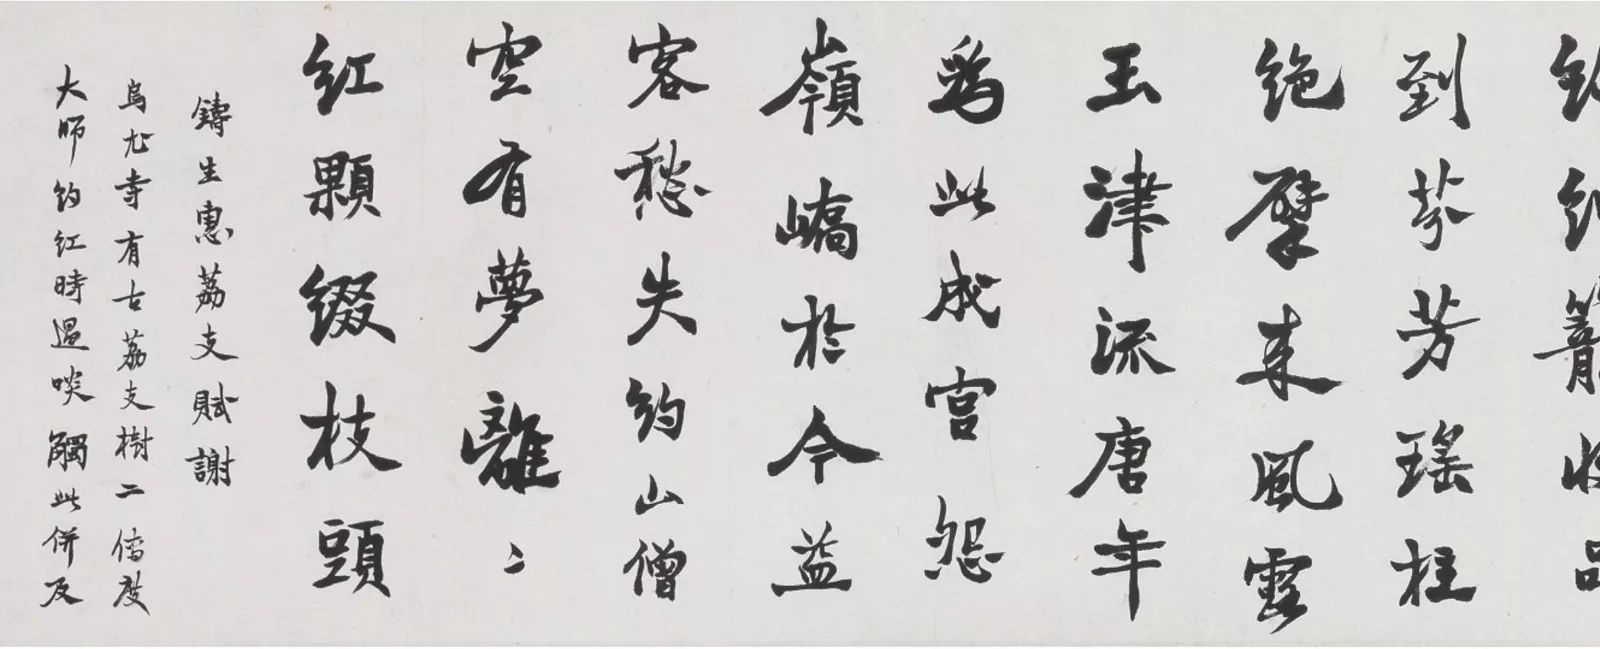 到芬芳瑤柱
絶擘來風露
玉津流唐年
爲此成宮怨
嶺嶠於今益
客愁失約山僧
空有夢離〻
紅顆綴枝頭
鑄生惠荔支賦謝
烏尤寺有古荔支樹二傳度
大師約紅時過啖觸此併及